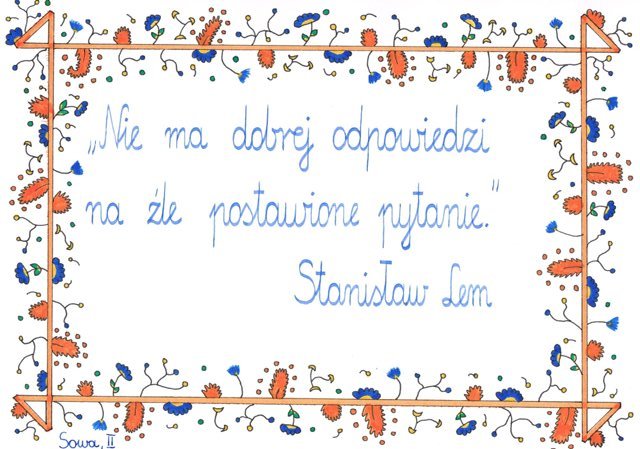 „Nie ma dobrej odpowiedzi
na źle postawione pytanie."
Stanisław Lem
Sowa, II